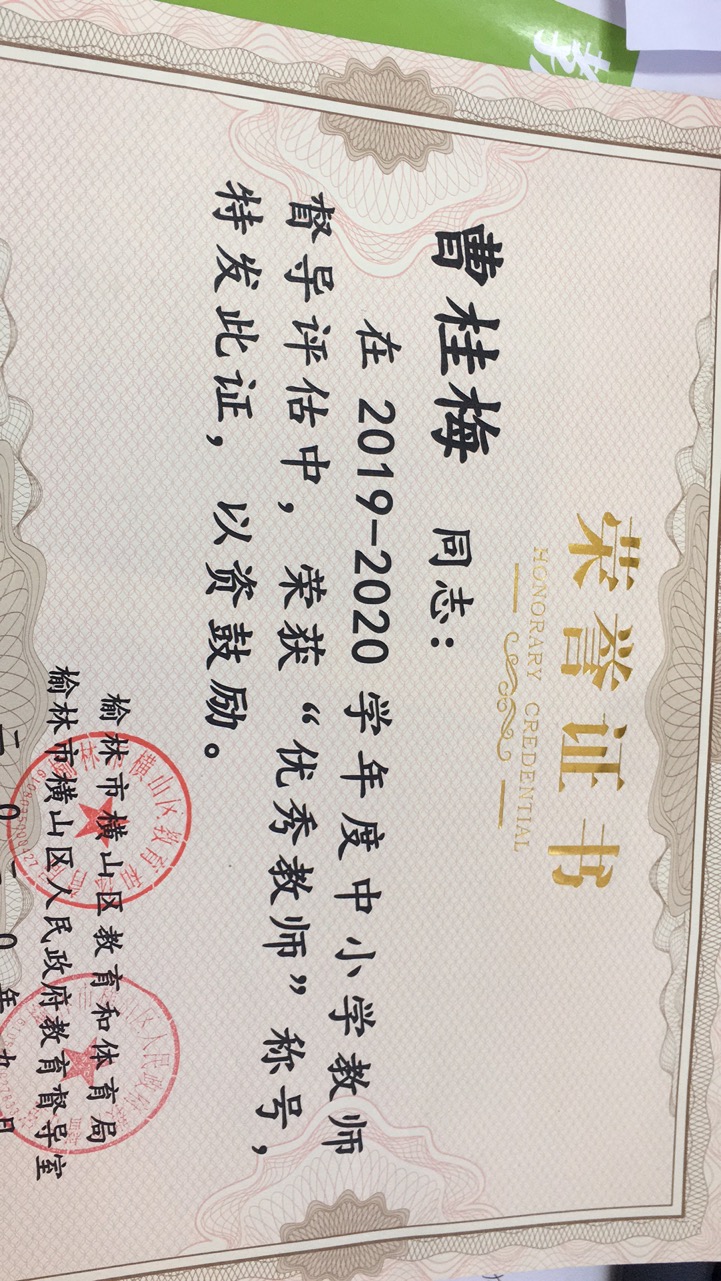 荣誉证书
HONORARY CREDENTIAL
曹桂梅 同志：
在 2019-2020 学年度中小学教师
督导评估中，荣获“优秀教师”称号，
特发此证，以资鼓励。
榆林市横山区教育和体育局
榆林市横山区人民政府教育督导室
二0二0年九月